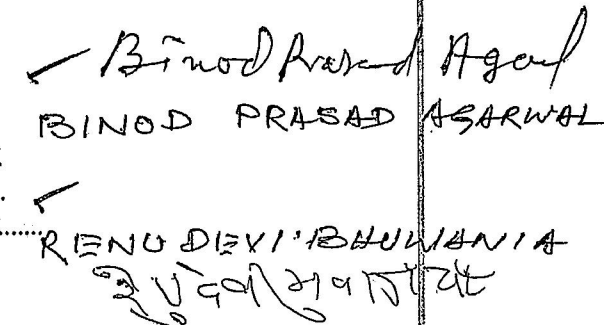 Binod Prasad Agarwal
BINOD PRASAD AGARWAL
RENU DEVI BHUWANIA